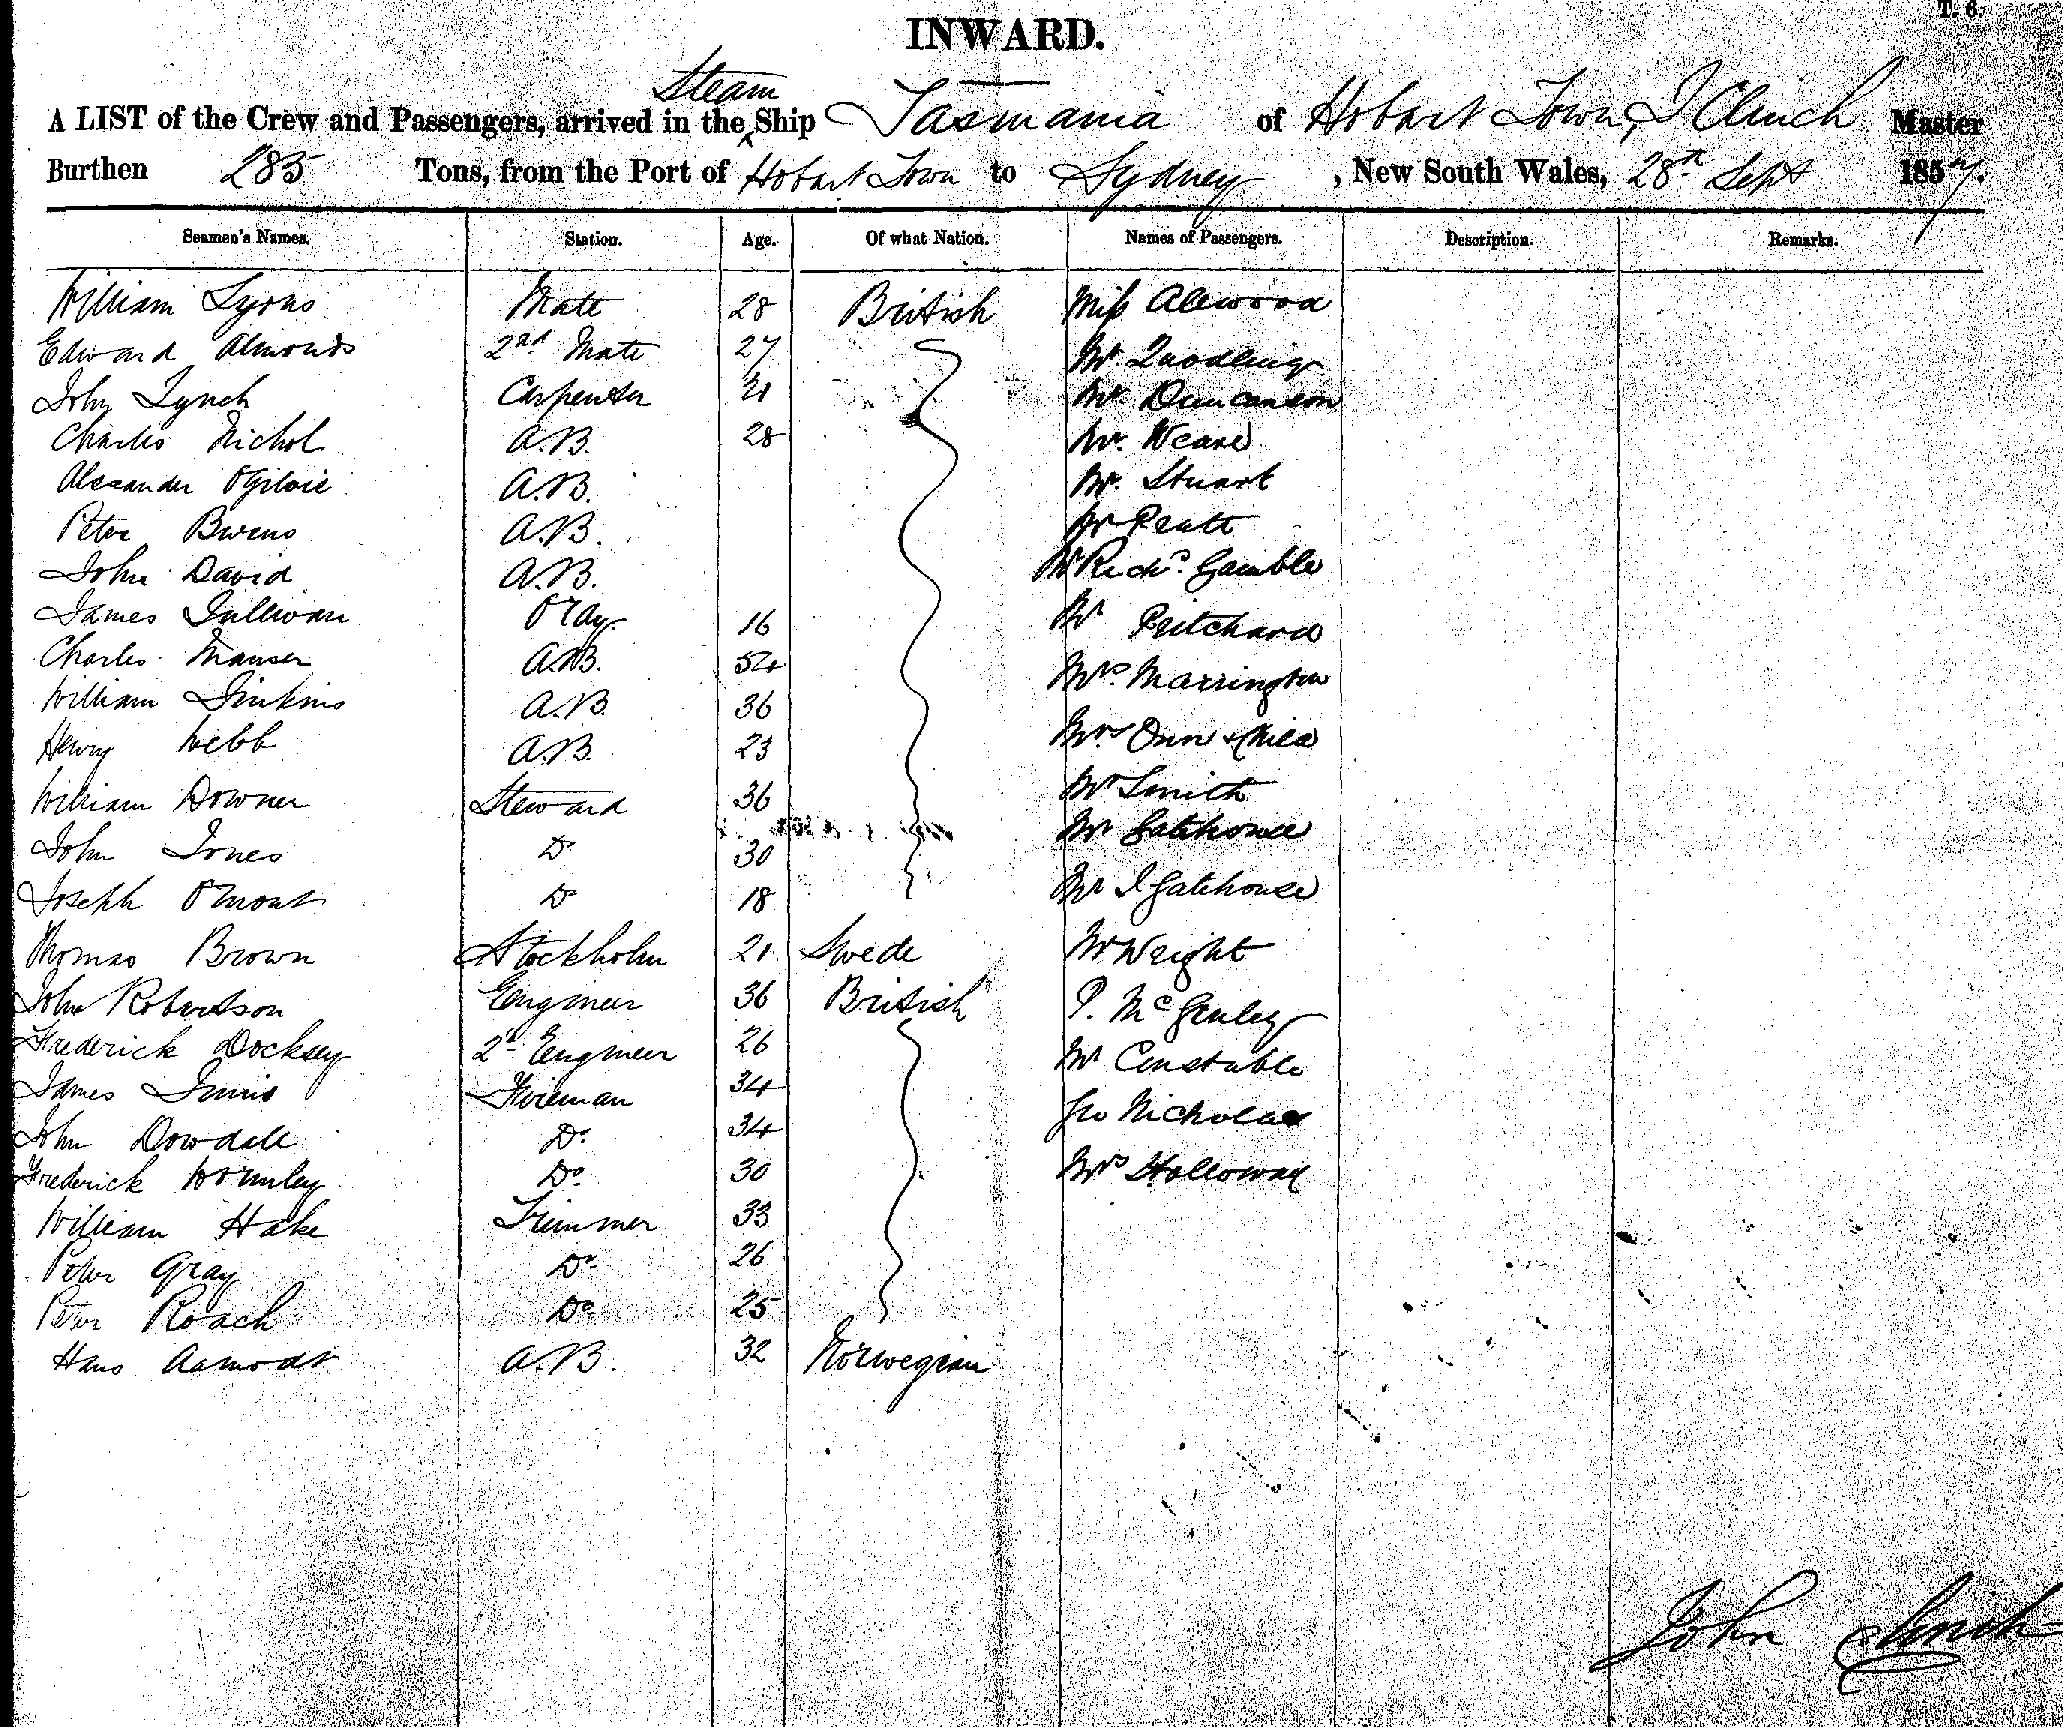 T. 6.
INWARD.
Steam
A LIST of the Crew and Passengers, arrived in the Ship Tasmania of Hobart Town, J Clinch Master
Burthen 285 Tons, from the Port of Hobart Town to Sydney, New South Wales, 28th Sept 1857.
Seamen's Names. Station. Age. Of what Nation. Names of Passengers. Description. Remarks.
William Lyons Mate 28 British Miss Allwood
Edward Almonds 2nd Mate 27 Mr.
John Lynch Carpenter 21 Mr Duncanson
Charles Nichol A.B. 28 Mr. Weare
Alexander Ogilvie A.B. Mr. Stuart
Peter A.B. Mr Pratt
John David A.B. Mr Richd. Gamble
James Sullivan O'Day 16 Mr Pritchard
Charles Manser A.B. 54 Mrs. Marrington
William Jenkins A.B. 36 Mrs. Dunn & Child
Henry Webb A.B. 23
William Downer Steward 36 Mr Smith
John Jones Do 30 Mr Gatehouse
Joseph Do 18 Mr J Gatehouse
Thomas Brown Stockholm 21 Swede Mr Wright
John Robertson Engineer 36 British P. McGenley
Frederick Docksey 2d Engineer 26 Mr Constable
James Fireman 34 Geo Nicholas
John Dowdall Do. 34
Frederick Wormley Do. 30 Mrs Holloway
William Hake Trimmer 33
Peter Gray Do 26
Peter Roach Do 25
Hans Aamodt A.B. 32 Norwegian
John Clinch